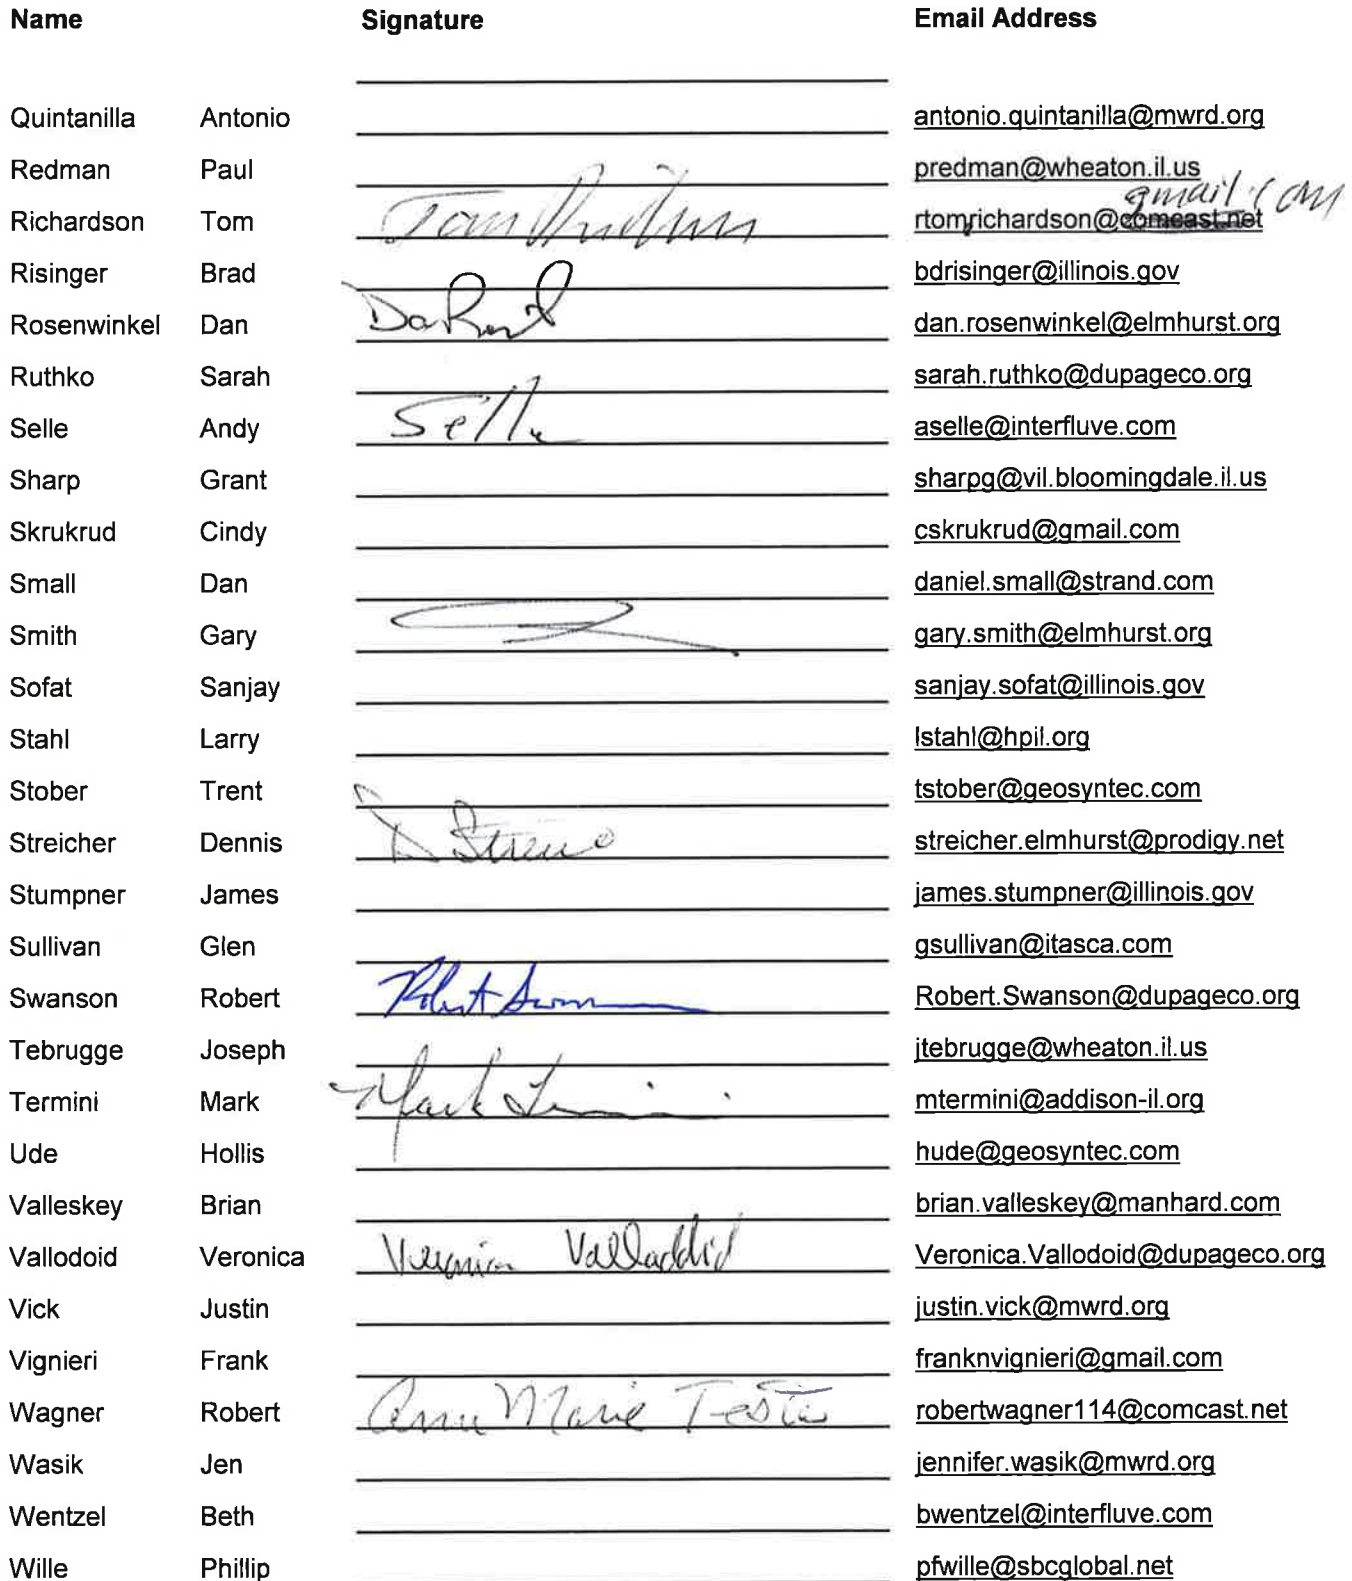 Name Signature Email Address
Quintanilla Antonio antonio.quintanilla@mwrd.org
Redman Paul predman@wheaton.il.us
gmail.com
Richardson Tom Tom rtomrichardson@comcast.net
Risinger Brad bdrisinger@illinois.gov
Rosenwinkel Dan dan.rosenwinkel@elmhurst.org
Ruthko Sarah sarah.ruthko@dupageco.org
Selle Andy Selle aselle@interfluve.com
Sharp Grant sharpg@vil.bloomingdale.il.us
Skrukrud Cindy cskrukrud@gmail.com
Small Dan daniel.small@strand.com
Smith Gary gary.smith@elmhurst.org
Sofat Sanjay sanjay.sofat@illinois.gov
Stahl Larry lstahl@hpil.org
Stober Trent tstober@geosyntec.com
Streicher Dennis streicher.elmhurst@prodigy.net
Stumpner James james.stumpner@illinois.gov
Sullivan Glen gsullivan@itasca.com
Swanson Robert Robert Swanson Robert.Swanson@dupageco.org
Tebrugge Joseph jtebrugge@wheaton.il.us
Termini Mark Mark Termini mtermini@addison-il.org
Ude Hollis hude@geosyntec.com
Valleskey Brian brian.valleskey@manhard.com
Vallodoid Veronica Veronica Valladdid Veronica.Vallodoid@dupageco.org
Vick Justin justin.vick@mwrd.org
Vignieri Frank franknvignieri@gmail.com
Wagner Robert Ann Marie Testa robertwagner114@comcast.net
Wasik Jen jennifer.wasik@mwrd.org
Wentzel Beth bwentzel@interfluve.com
Wille Phillip pfwille@sbcglobal.net